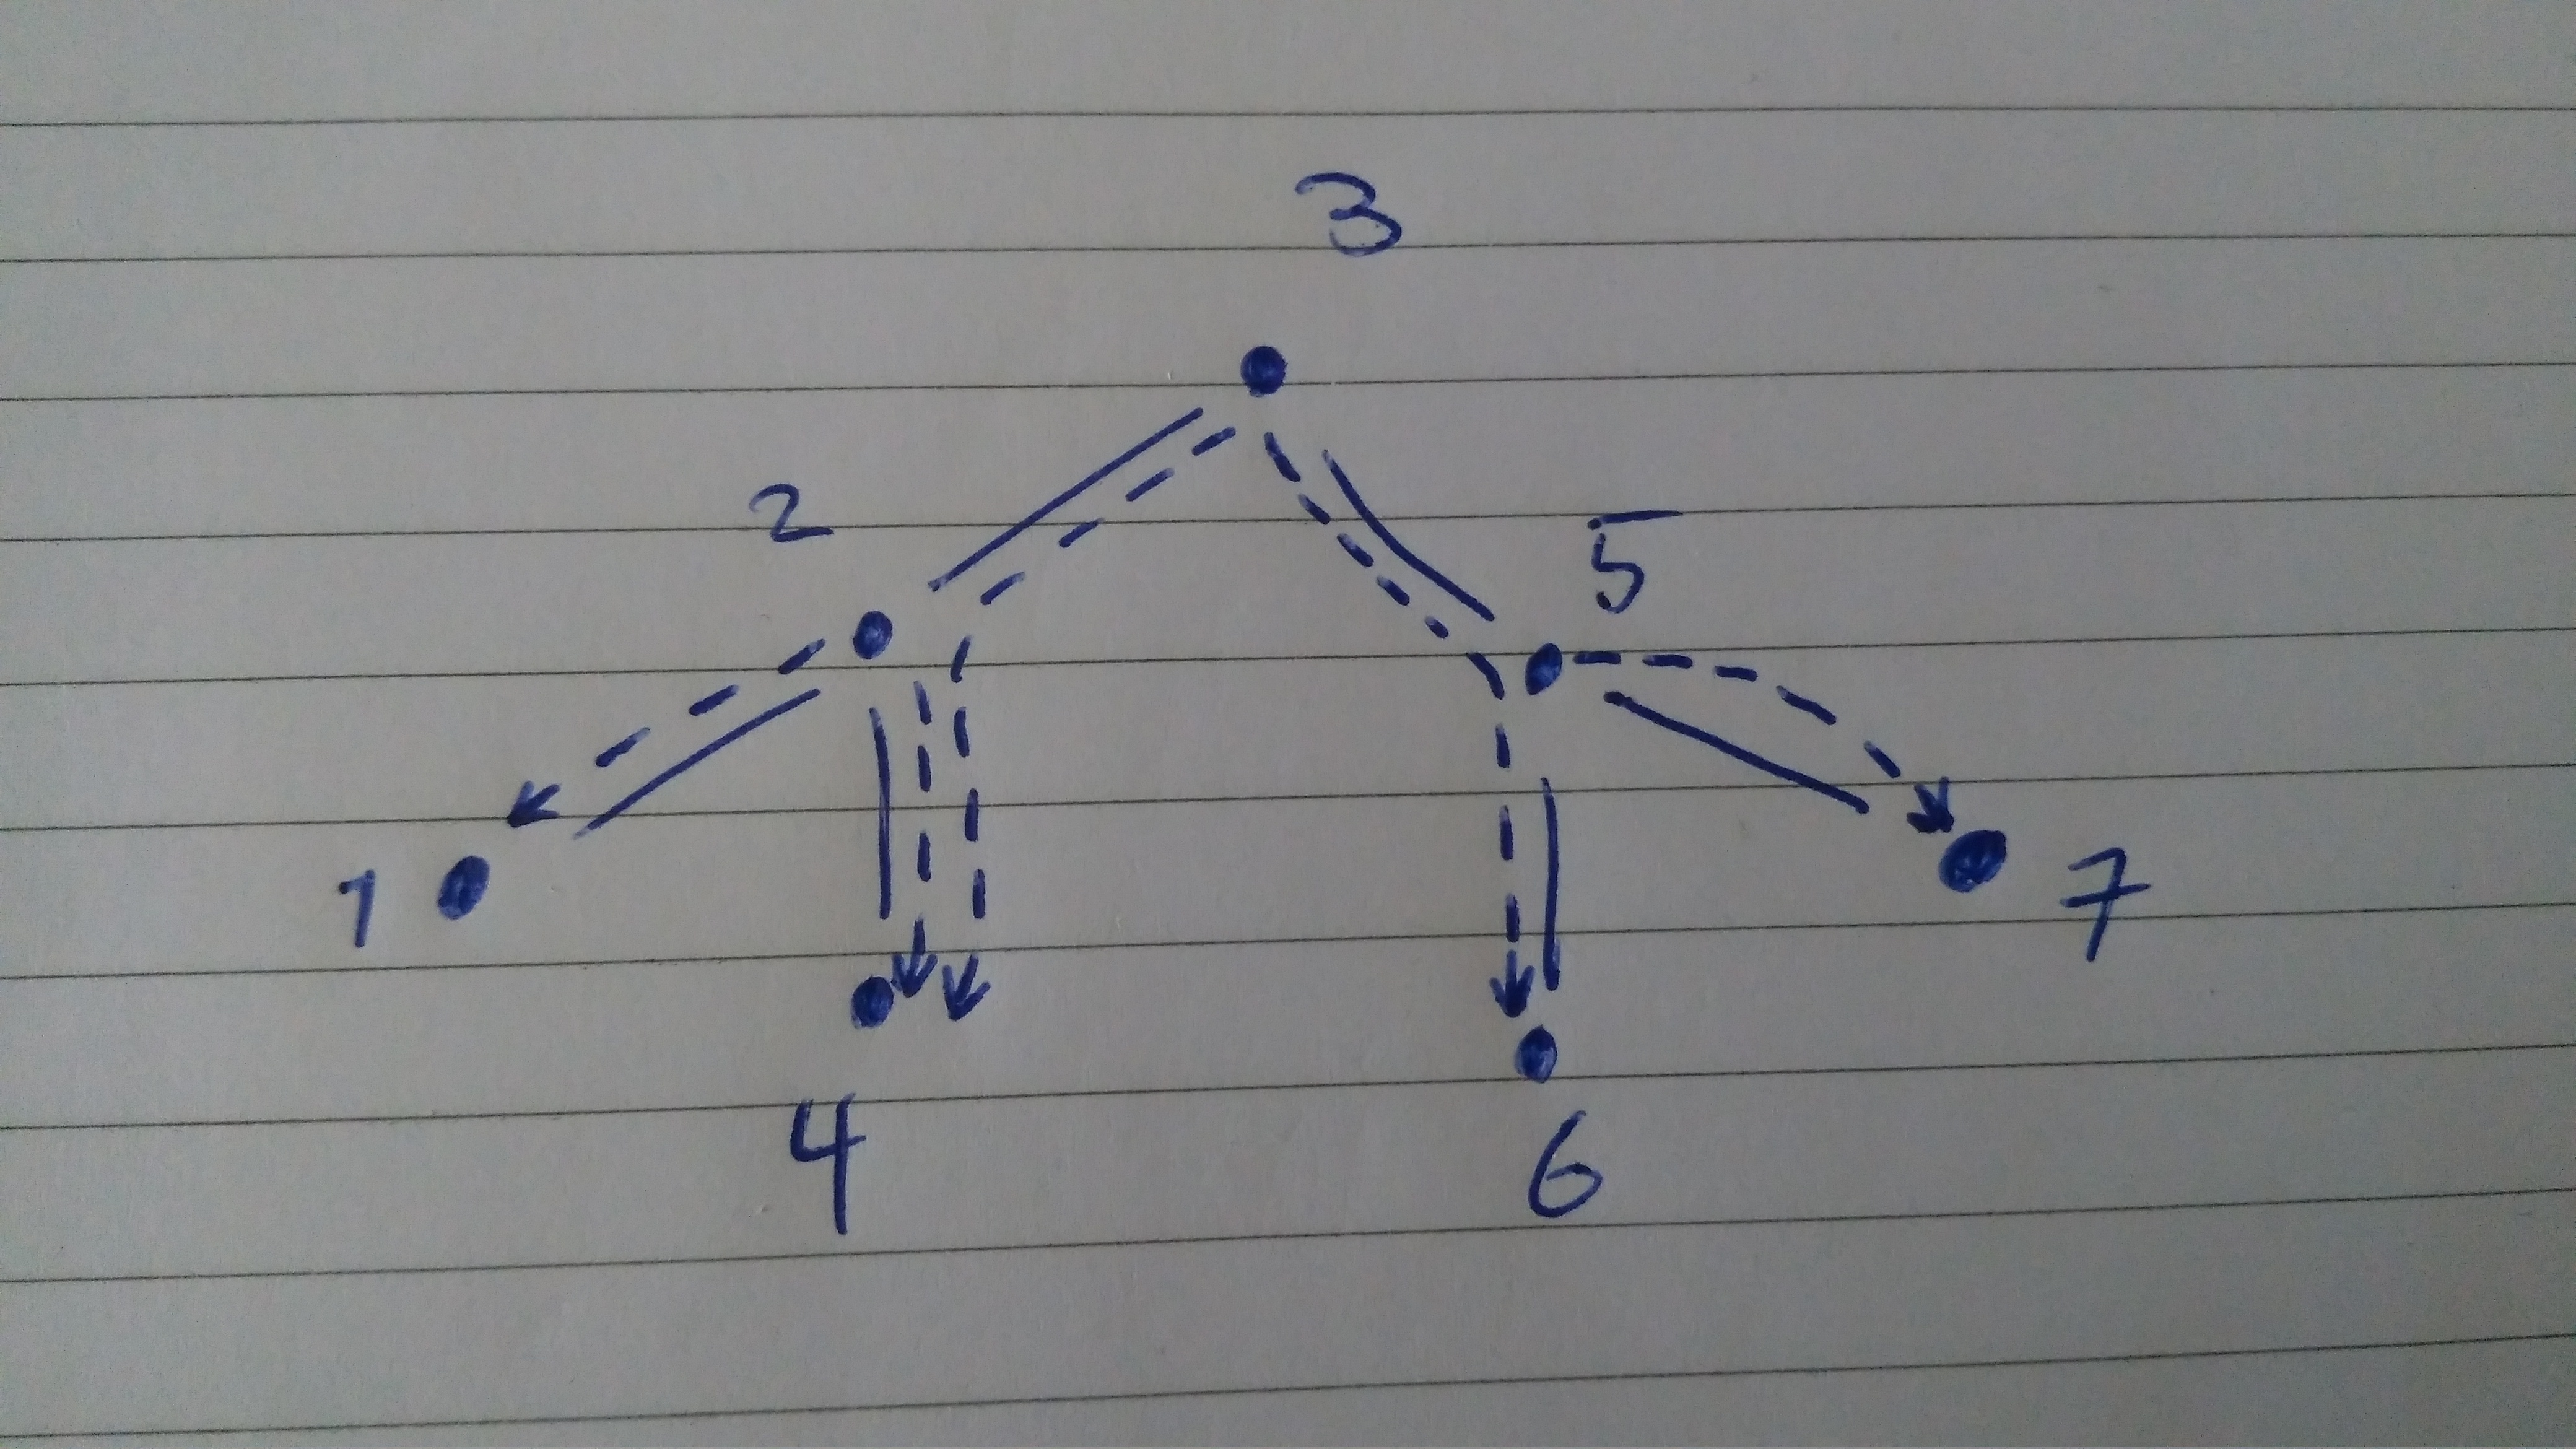 3
2
5
1
7
4
6